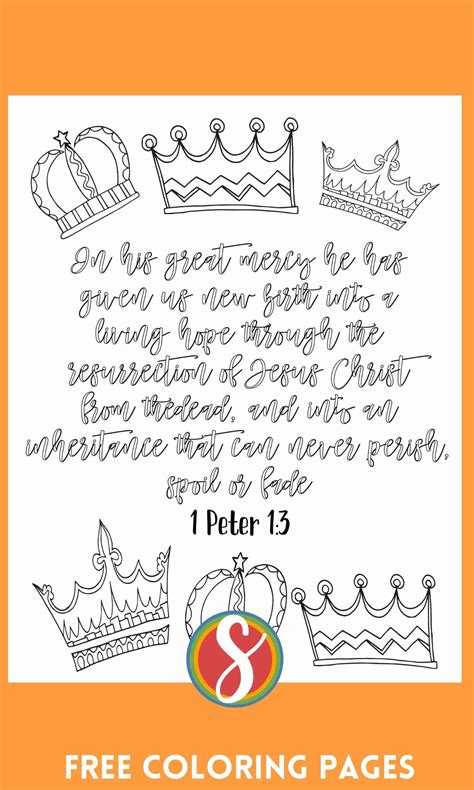 In his great mercy he has
given us new birth into a
living hope through the
resurrection of Jesus Christ
from thedead, and into an
inheritance that can never perish,
spoil or fade
1 Peter 1:3
S
FREE COLORING PAGES